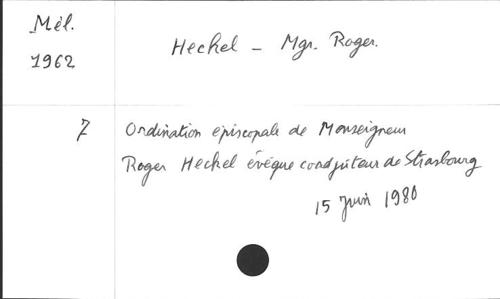 Mél.
1962
Heckel - Mgr. Roger.
7
Ordination épiscopale de Monseigneur
Roger Heckel évêque coadjuteur de Strasbourg
15 Juin 1980